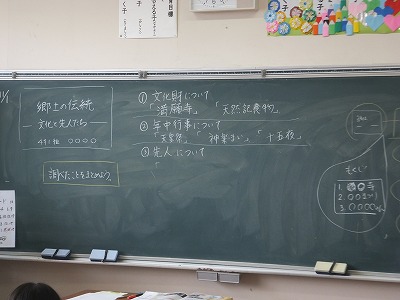 郷土の伝統
―文化と先人たち―
4年1組 ○○○○
調べたことをまとめよう
① 文化財について
「満願寺」 「天然記念物」
② 年中行事について
「天皇祭」 「神楽まい」 「十五夜」
③ 先人について
「
もくじ
1. ○○寺
2. ○○まつり
3. ○○○○さん